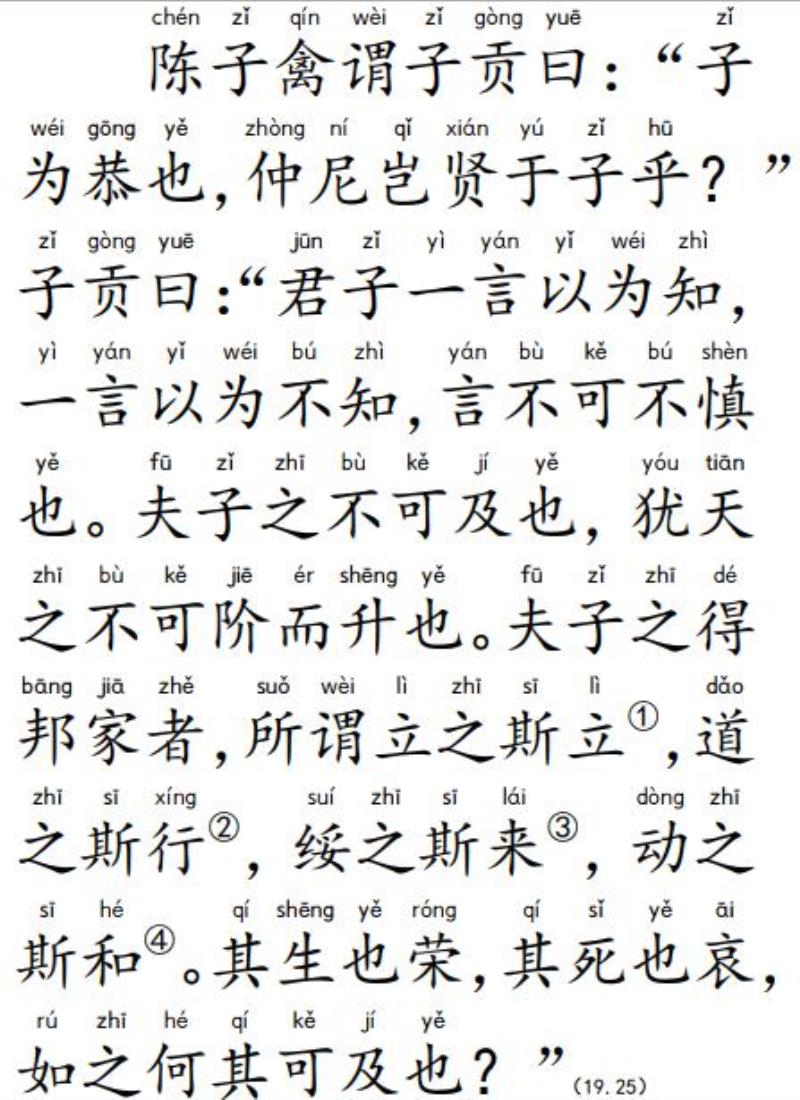 chén zǐ qín wèi zǐ gòng yuē zǐ
陈子禽谓子贡曰：“子
wéi gōng yě zhòng ní qǐ xián yú zǐ hū
为恭也，仲尼岂贤于子乎？”
zǐ gòng yuē jūn zǐ yì yán yǐ wéi zhì
子贡曰：“君子一言以为知，
yì yán yǐ wéi bú zhì yán bù kě bú shèn
一言以为不知，言不可不慎
yě fū zǐ zhī bù kě jí yě yóu tiān
也。夫子之不可及也，犹天
zhī bù kě jiē ér shēng yě fū zǐ zhī dé
之不可阶而升也。夫子之得
bāng jiā zhě suǒ wèi lì zhī sī lì dǎo
邦家者，所谓立之斯立①，道
zhī sī xíng suí zhī sī lái dòng zhī
之斯行②，绥之斯来③，动之
sī hé qí shēng yě róng qí sǐ yě āi
斯和④。其生也荣，其死也哀，
rú zhī hé qí kě jí yě
如之何其可及也？”(19.25)